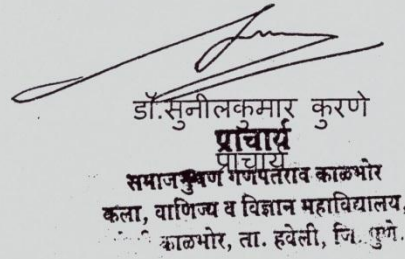 डॉ.सुनीलकुमार कुरणे
प्राचार्य
प्राचार्य
समाजभुषण गणपतराव काळभोर
कला, वाणिज्य व विज्ञान महाविद्यालय,
काळभोर, ता. हवेली, जि. पुणे.